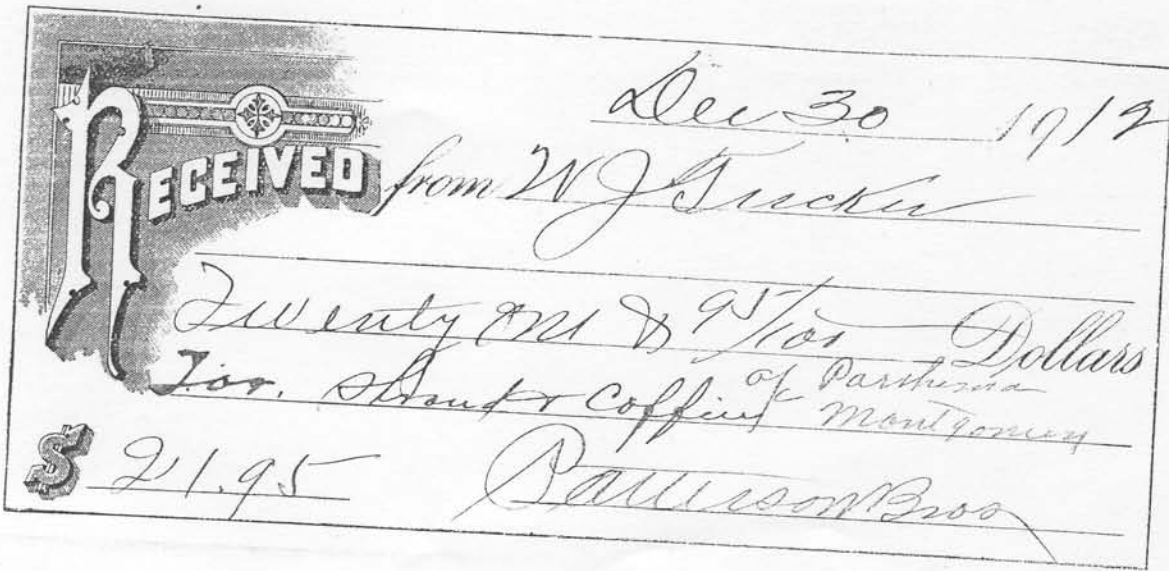 Dec 30 1912
RECEIVED from W J Tucker
Twenty one & 95/100 Dollars
For. Shroud & Coffin of Parthenia Montgomery
$ 21.95 Patterson Bros